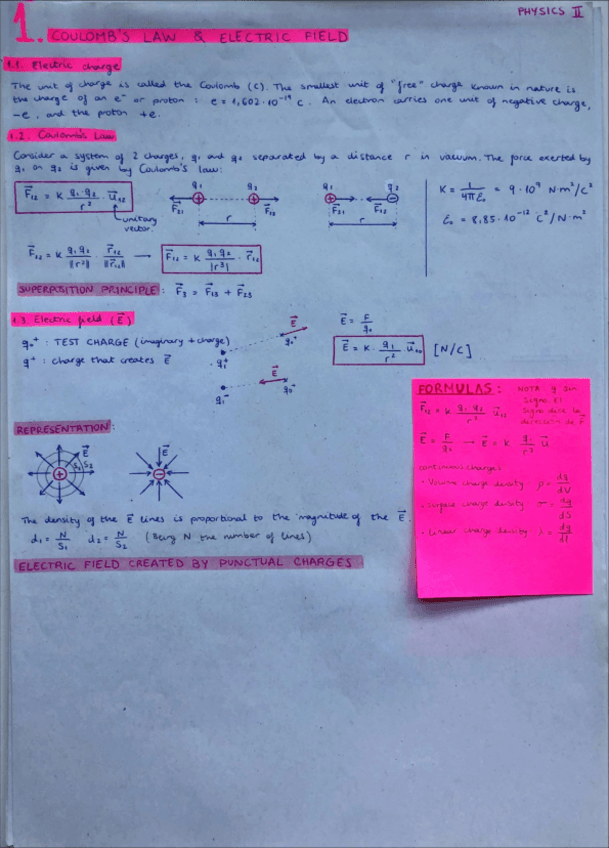 PHYSICS II
1. COULOMB'S LAW & ELECTRIC FIELD
1.1. Electric charge
The unit of charge is called the Coulomb (C). The smallest unit of "free" charge known in nature is
the charge of an e⁻ or proton : e = 1,602·10⁻¹⁹ C. An electron carries one unit of negative charge,
-e, and the proton +e.
1.2. Coulomb's Law
Consider a system of 2 charges, q₁ and q₂ separated by a distance r in vacuum. The force exerted by
q₁ on q₂ is given by Coulomb's law:
F⃗₁₂ = K q₁·q₂/r² · u⃗₁₂
unitary vector
q₁ q₂
F⃗₂₁ F⃗₁₂
r
q₁ q₂
F⃗₂₁ F⃗₁₂
r
K = 1/4πε₀ = 9·10⁹ N·m²/C²
ε₀ = 8,85·10⁻¹² C²/N·m²
F⃗₁₂ = K q₁q₂/|r²| · r⃗₁₂/|r⃗₁₂| → F⃗₁₂ = K q₁q₂/|r³| · r⃗₁₂
SUPERPOSITION PRINCIPLE: F⃗₃ = F⃗₁₃ + F⃗₂₃
1.3. Electric field (E⃗)
q₀⁺ : TEST CHARGE (imaginary + charge)
q⁺ : charge that creates E⃗
E⃗
q₀⁺
q₁⁺
E⃗
q₀⁺
q₁⁻
E⃗ = F/q₀
E⃗ = K · q₁/r² u⃗₁₀ [N/C]
REPRESENTATION:
E⃗
S₁ S₂
+
E⃗
-
The density of the E⃗ lines is proportional to the magnitude of the E⃗.
d₁ = N/S₁ d₂ = N/S₂ (Being N the number of lines)
ELECTRIC FIELD CREATED BY PUNCTUAL CHARGES
FORMULAS:
NOTA: q sin
signo. El
signo dice la
dirección de F⃗
F⃗₁₂ = K q₁q₂/r² u⃗₁₂
E⃗ = F/q₀ → E⃗ = K q₁/r² u⃗
continuous charges
· Volume charge density ρ = dq/dV
· Surface charge density σ = dq/dS
· Linear charge density λ = dq/dl